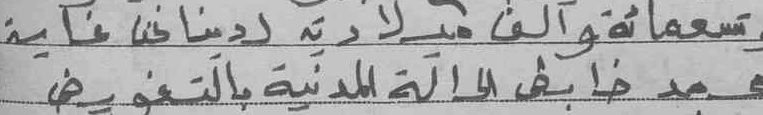 وتسعمائة وألف ميلادية لدينا نحن
محمد ضابط الحالة المدنية بالتفويض